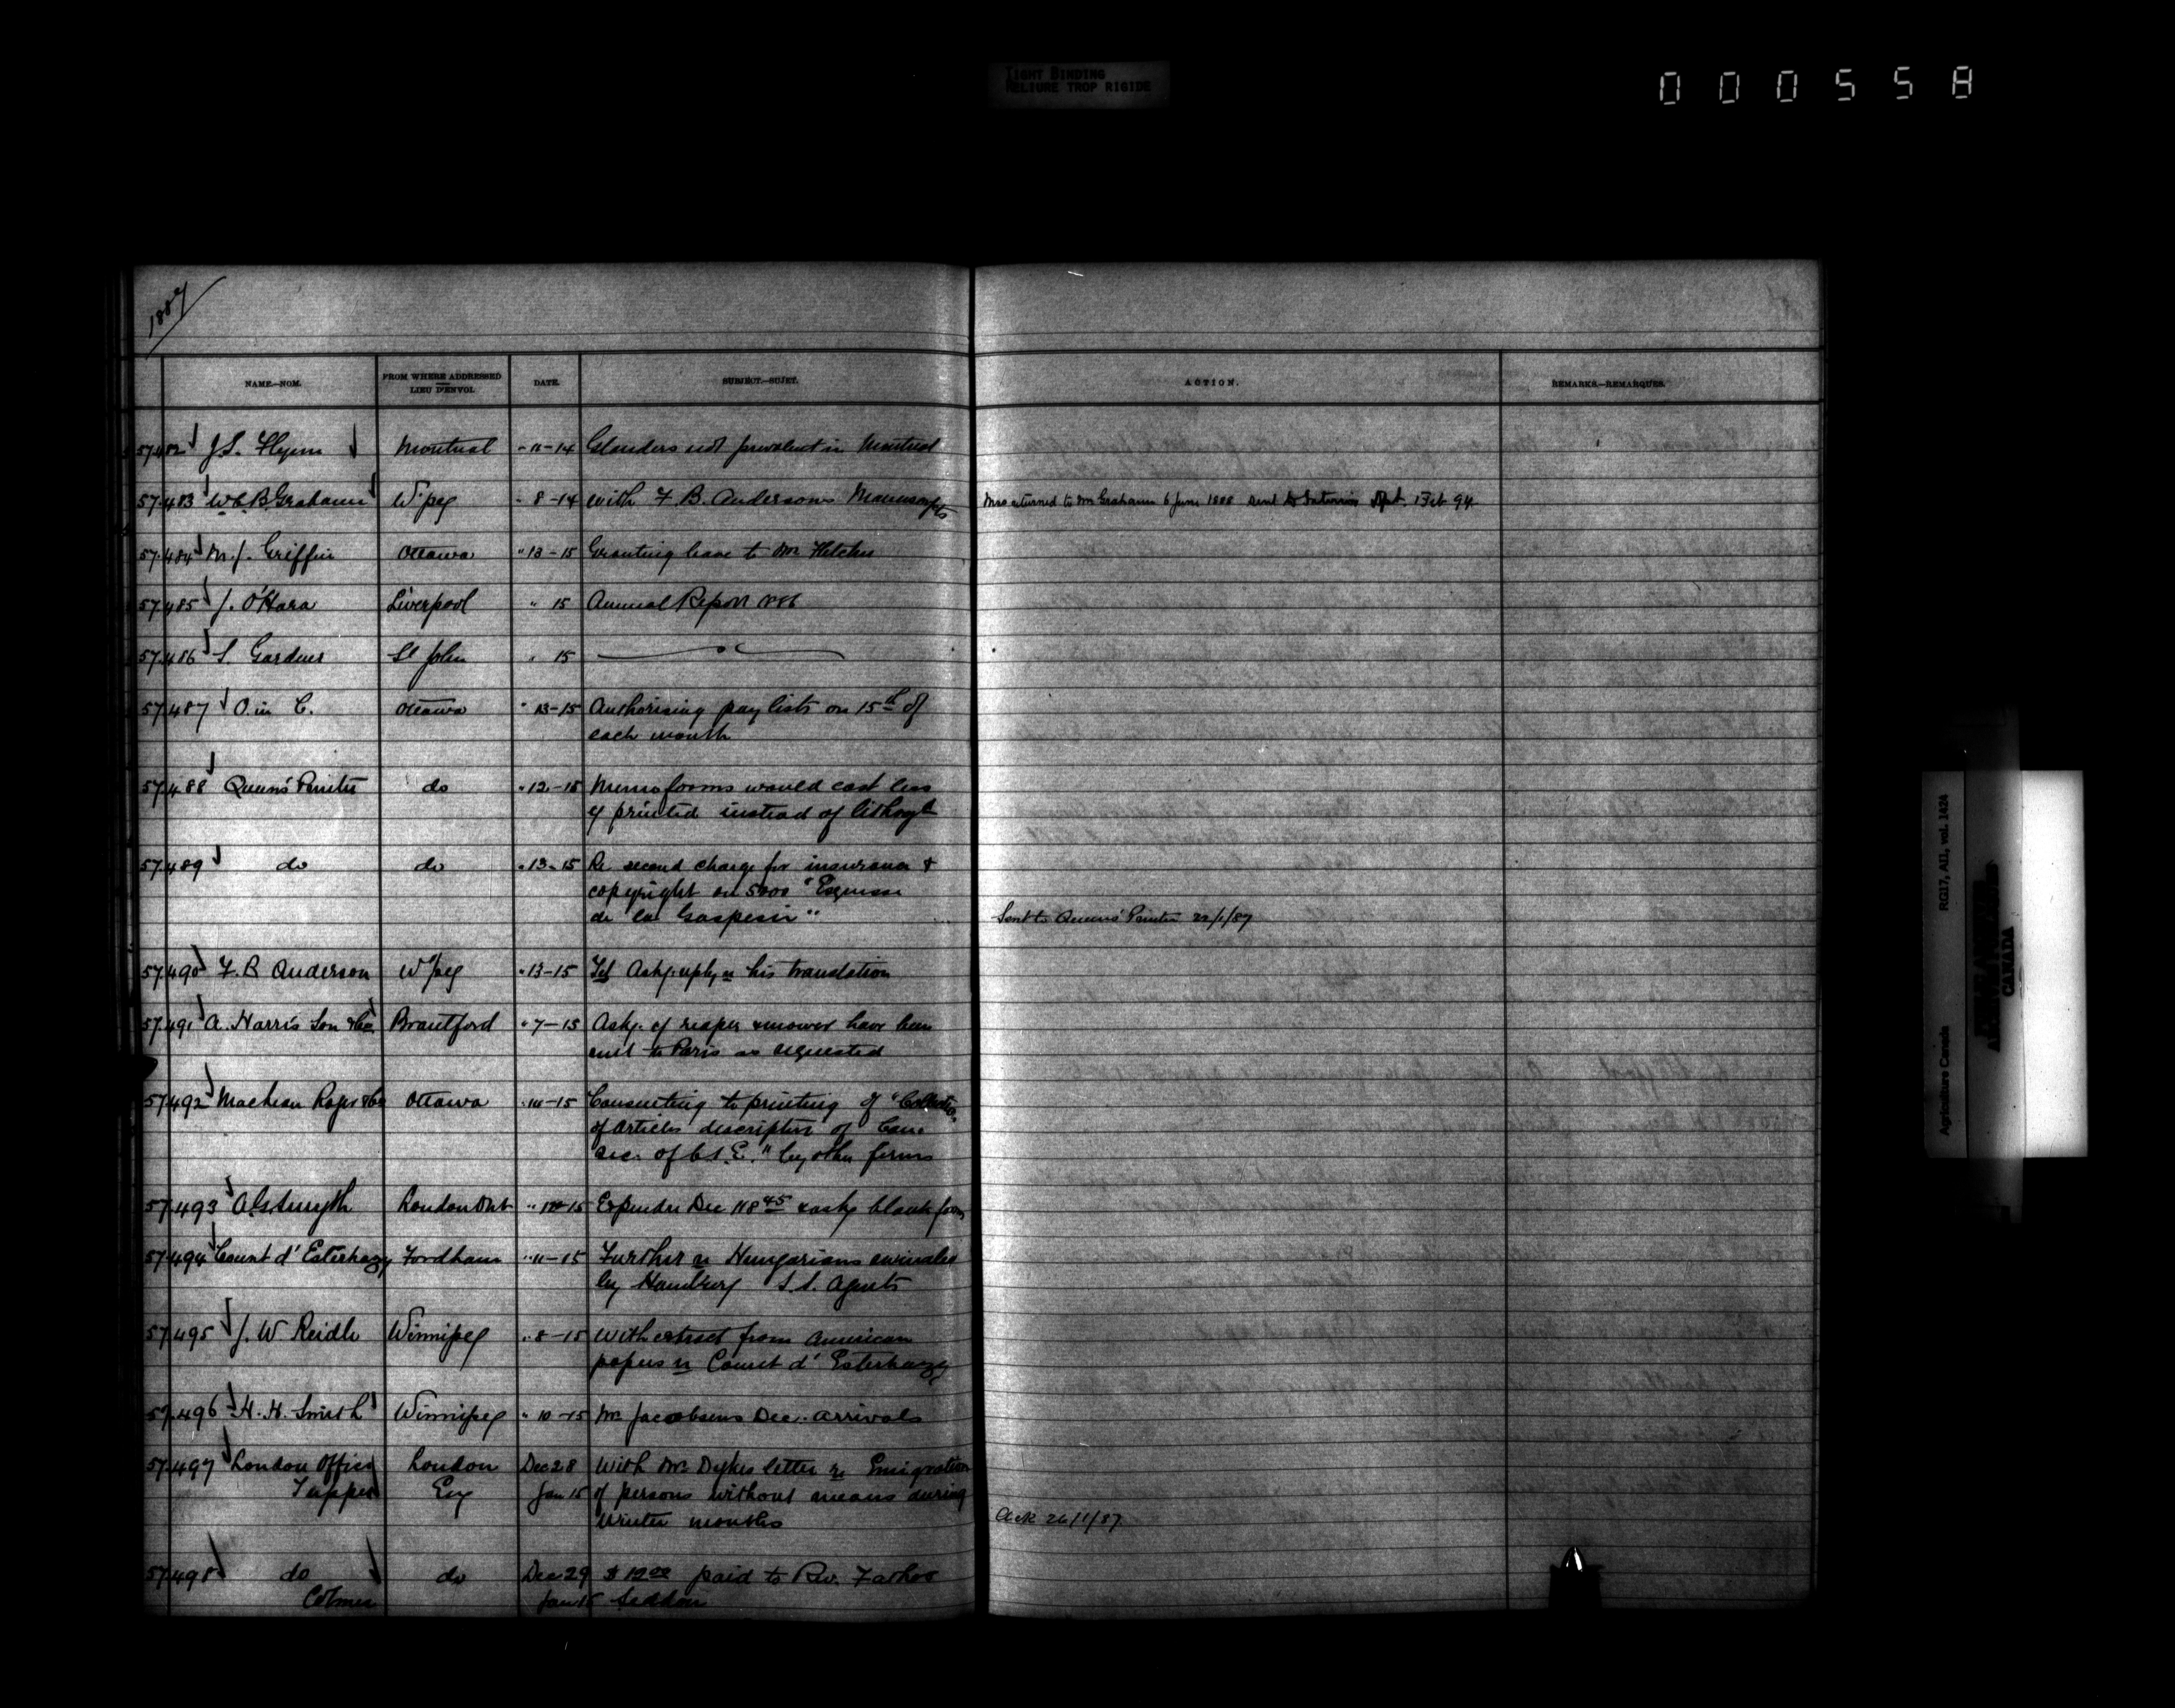 TIGHT BINDING
RELIURE TROP RIGIDE
000558
1887
NAME.—NOM. FROM WHERE ADDRESSED LIEU D'ENVOI. DATE. SUBJECT.—SUJET. ACTION. REMARKS.—REMARQUES.
57.482 J.S. Flynn Montreal " 11-14 Glanders not prevalent in Montreal
57.483 W.C.B. Grahame W'peg " 8-14 With F.B. Andersons Manuscripts Mss returned to Mr Grahame 6 June 1888 Sent to Interior Dpt. 1 Feb 94
57.484 M.J. Griffin Ottawa " 13-15 Granting leave to Mr Fletcher
57.485 J. O'Hara Liverpool " 15 Annual Report 1886
57.486 S. Gardner St John " 15
57.487 O. in C. Ottawa " 13-15 Authorising pay lists on 15th of
each month
57.488 Queen's Printer do " 12-15 Memo forms would cost less
if printed instead of lithogh
57.489 do do " 13-15 Re second charge for insurance &
copyright on 5000 "Esquisse
de la Gaspesie" Sent to Queens' Printer 22/1/87
57.490 F.B Anderson W'peg " 13-15 Tel Askg. reply re his translation
57.491 A. Harris Son & Co. Brantford " 7-15 Askg. if reaper & mower have been
sent to Paris as requested
57.492 Maclean Roger & Co Ottawa " 14-15 Consenting to printing of "Collectio.
of Articles descriptive of Can.
Sec. of C.I.E." by other firms
57.493 A.G. Smyth London Ont " 15 Expendre Dec 118 45 & askg blank forms
57.494 Count d'Esterhazy Fordham " 11-15 Further re Hungarians
by Hamburg S.S. Agents
57.495 J.W Reidle Winnipeg " 8-15 With extract from American
papers re Count d'Esterhazy
57.496 H.H. Smith Winnipeg " 10-15 Mr Jacobsens Dec. arrivals
57.497 London Office London Dec 28 With Mr. Dykes letter re Emigration
Tupper Eng Jan 15 of persons without means during
Winter months Ack 26/1/87
57.498 do do Dec 29 $ 12 paid to Rev. Father
Colmer Jan 15 Seddon
RG17, AII, vol. 1424
Agriculture Canada
CANADA